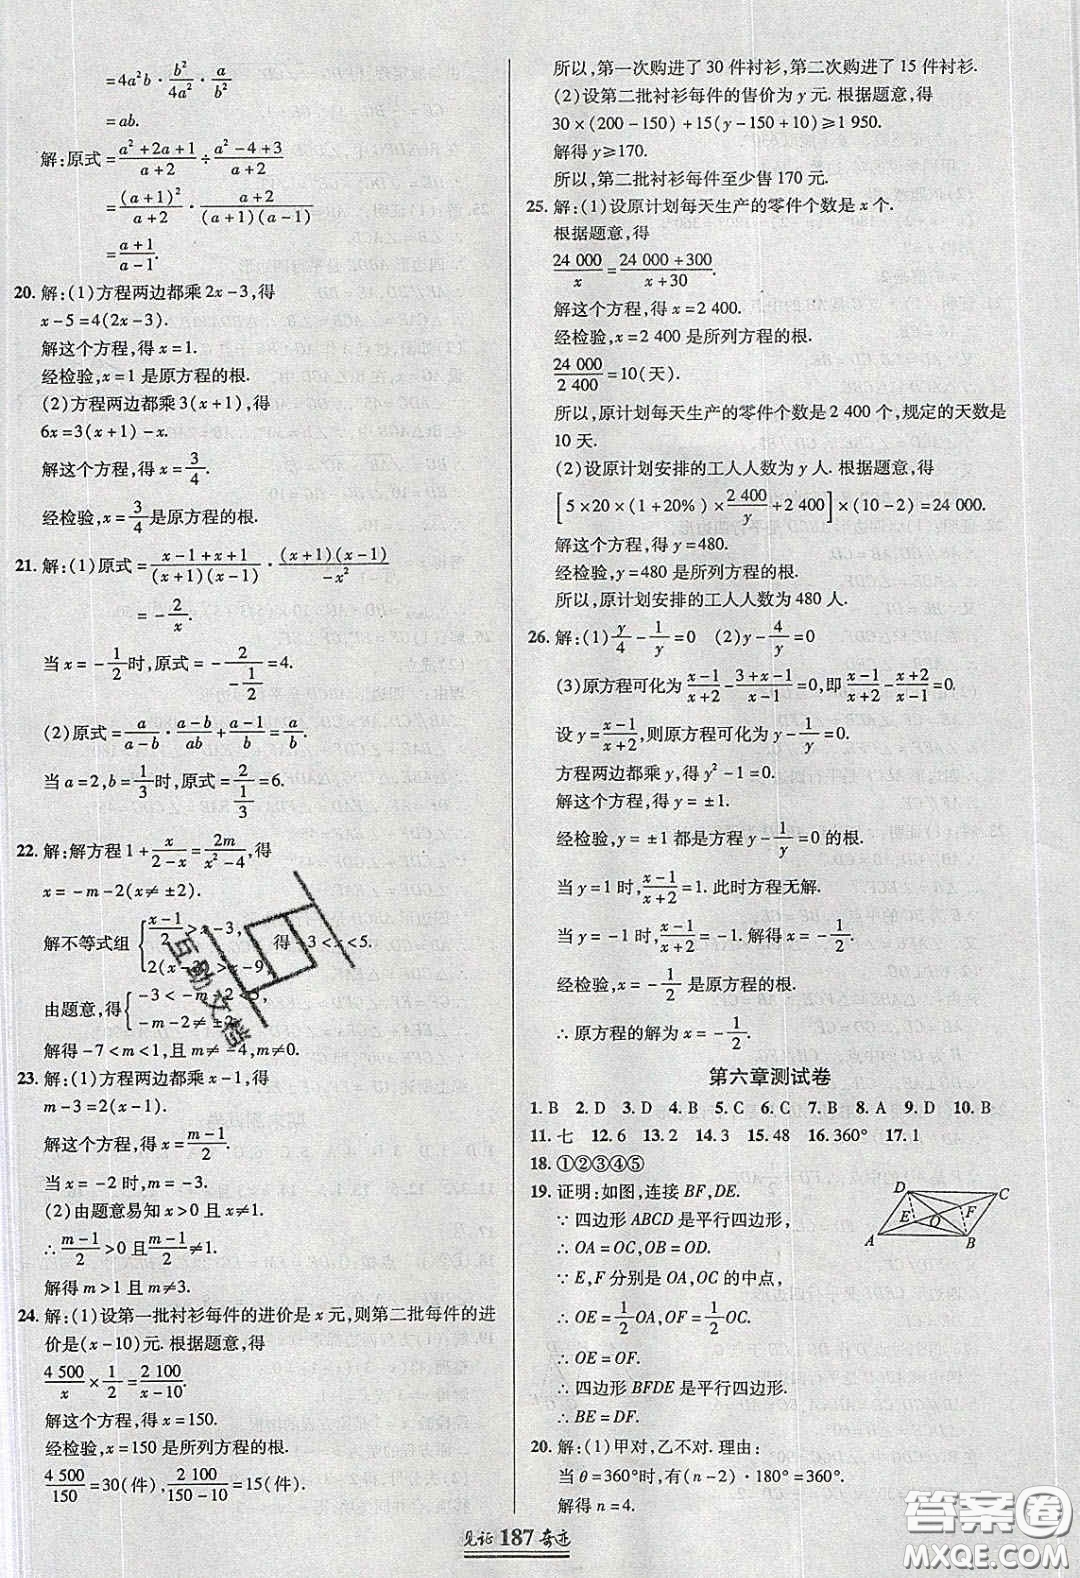 =4a²b · b²/4a² · a/b²
=ab.
解:原式=(a²+2a+1)/(a+2) ÷ (a²-4+3)/(a+2)
=(a+1)²/(a+2) · (a+2)/((a+1)(a-1))
=(a+1)/(a-1).
20. 解:(1)方程两边都乘2x-3,得
x-5=4(2x-3).
解这个方程,得x=1.
经检验,x=1是原方程的根.
(2)方程两边都乘3(x+1),得
6x=3(x+1)-x.
解这个方程,得x=3/4.
经检验,x=3/4是原方程的根.
21. 解:(1)原式=(x-1+x+1)/((x+1)(x-1)) · ((x+1)(x-1))/(-x²)
=-2/x.
当x=-1/2时,原式=-2/(-1/2)=4.
(2)原式=a/(a-b) · (a-b)/ab + (a-1)/b = a/b.
当a=2,b=1/3时,原式=2/(1/3)=6.
22. 解:解方程1+x/(2-x)=2m/(x²-4),得
x=-m-2(x≠±2).
解不等式组{(x-1)/2>x-3, 2(x-3)>x-9, 得-3<x<5.
由题意,得{-3<-m-2<5, -m-2≠±2.
解得-7<m<1,且m≠-4,m≠0.
23. 解:(1)方程两边都乘x-1,得
m-3=2(x-1).
解这个方程,得x=(m-1)/2.
当x=-2时,m=-3.
(2)由题意易知x>0且x≠1.
∴(m-1)/2>0且(m-1)/2≠1.
解得m>1且m≠3.
24. 解:(1)设第一批衬衫每件的进价是x元,则第二批每件的进
价是(x-10)元. 根据题意,得
4 500/x×1/2=2 100/(x-10).
解这个方程,得x=150.
经检验,x=150是所列方程的根.
4 500/150=30(件),2 100/(150-10)=15(件).
所以,第一次购进了30件衬衫,第二次购进了15件衬衫.
(2)设第二批衬衫每件的售价为y元. 根据题意,得
30×(200-150)+15(y-150+10)≥1 950.
解得y≥170.
所以,第二批衬衫每件至少售170元.
25. 解:(1)设原计划每天生产的零件个数是x个.
根据题意,得
24 000/x=(24 000+300)/(x+30).
解这个方程,得x=2 400.
经检验,x=2 400是所列方程的根.
24 000/2 400=10(天).
所以,原计划每天生产的零件个数是2 400个,规定的天数是
10天.
(2)设原计划安排的工人人数为y人. 根据题意,得
[5×20×(1+20%)×2 400/y+2 400]×(10-2)=24 000.
解这个方程,得y=480.
经检验,y=480是所列方程的根.
所以,原计划安排的工人人数为480人.
26. 解:(1)y/4-1/y=0 (2)y-4/y=0
(3)原方程可化为(x-1)/(x+2)-(3+x-1)/(x-1)=0,即(x-1)/(x+2)-(x+2)/(x-1)=0.
设y=(x-1)/(x+2),则原方程可化为y-1/y=0.
方程两边都乘y,得y²-1=0.
解这个方程,得y=±1.
经检验,y=±1都是方程y-1/y=0的根.
当y=1时,(x-1)/(x+2)=1. 此时方程无解.
当y=-1时,(x-1)/(x+2)=-1. 解得x=-1/2.
经检验,x=-1/2是原方程的根.
∴原方程的解为x=-1/2.
第六章测试卷
1. B 2. D 3. D 4. B 5. C 6. C 7. B 8. A 9. D 10. B
11. 七 12. 6 13. 2 14. 3 15. 48 16. 360° 17. 1
18. ①②③④⑤
19. 证明:如图,连接BF,DE.
∵四边形ABCD是平行四边形,
∴OA=OC,OB=OD.
∵E,F分别是OA,OC的中点,
∴OE=1/2OA,OF=1/2OC.
∴OE=OF.
∴四边形BFDE是平行四边形.
∴BE=DF.
D C
E O F
A B
20. 解:(1)甲对,乙不对. 理由:
当θ=360°时,有(n-2)·180°=360°.
解得n=4.
见证 187 奇迹
互助文档
答案圈
MXQE.COM